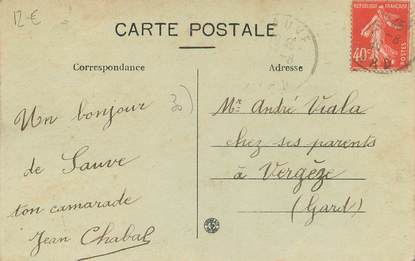 12-€
CARTE POSTALE
Correspondance
Adresse
RÉPUBLIQUE FRANÇAISE
40c
POSTES
30)
Un bonjour
de Sauve
ton camarade
Jean Chabal
Mr André Viala
chez ses parents
à Vergèze
(Gard)